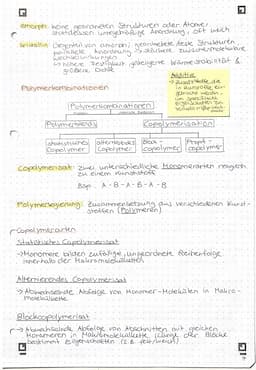 amorph: keine geordneten Strukturen der Atome,
stattdessen unregelmäßige Anordnung, oft weich
kristallin: Gegenteil von amorph, geordnete feste Strukturen,
parallele Anordnung → stärkere zwischenmolekulare
Wechselwirkungen
→ höhere Festigkeit, gesteigerte Wärmestabilität &
größere Dichte
Additive
→ Zusatzstoffe, die
in Kunststoffe
Eigenschaften zu
Polymerkombinationen
Polymerkombinationen
Polymerblends
Copolymerisation
statistisches Copolymer
alternierendes Copolymer
Block-copolymer
Propf-copolymer
Copolymerisat: zwei unterschiedliche Monomerarten reagieren
zu einem Kunststoff
Bsp. A-B-A-B-A-B
Polymerlegierung: Zusammensetzung aus verschiedenen Kunst-
stoffen (Polymeren)
Copolymerarten
Statistisches Copolymerisat
→ Monomere bilden zufällige, ungeordnete Reihenfolge
innerhalb der Makromolekülkette
Alternierendes Copolymerisat
→ Abwechselnde Abfolge von Monomer-Molekülen in Makro-
molekülkette
Blockcopolymerisat
→ Abwechselnde Abfolge von Abschnitten mit gleichen
Monomeren in Makromolekülkette (Länge der Blöcke
bestimmt Eigenschaften (z.B. fest/weich))